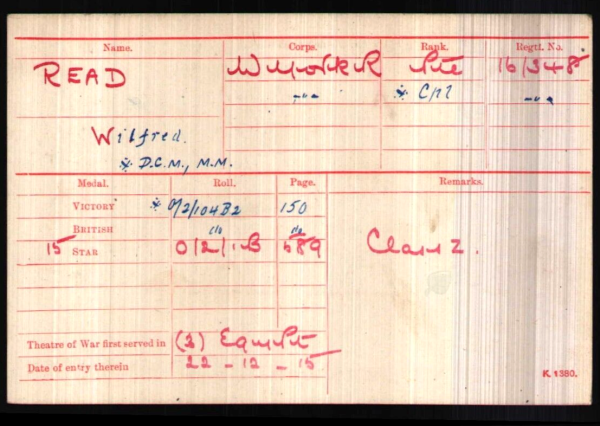 Name. Corps. Rank. Regtl. No.
READ W York R Pte 16/348
-"- * Cpl -"-
Wilfred.
* D.C.M., M.M.
Medal. Roll. Page. Remarks.
VICTORY * O/2/104B2 150
BRITISH do do
15 STAR O/2/1B 589 Class Z.
Theatre of War first served in (3) Egypt
Date of entry therein 22 - 12 - 15
K 1380.